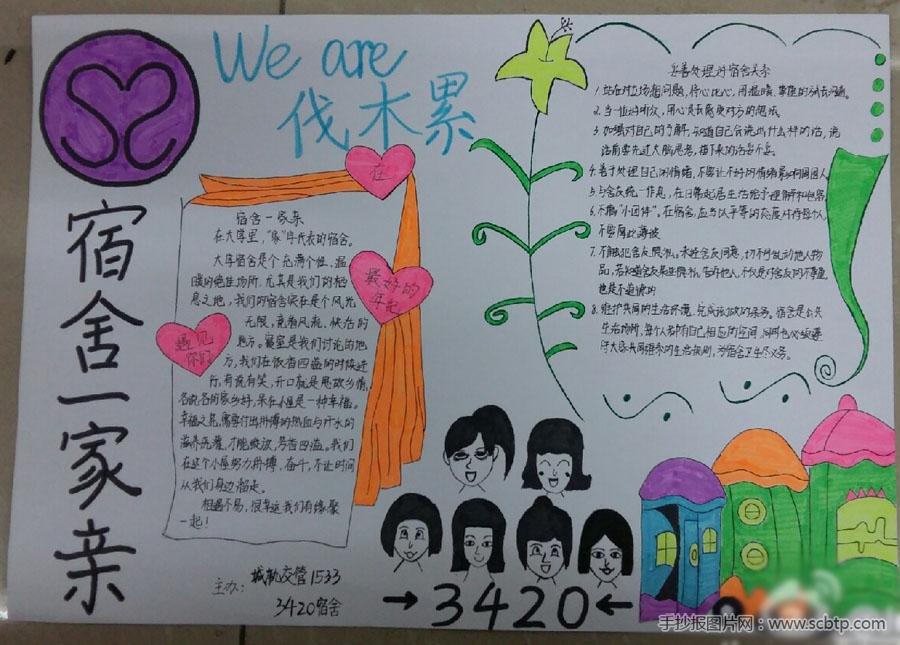 We are
伐木累
宿舍一家亲
在
最好的
年纪
遇见
你们
宿舍一家亲
在大学里，“家”与代表的宿舍。
大学宿舍是个充满个性、温
暖的绝佳场所，尤其是我们的栖
息之地，我们的宿舍实在是个风光
无限，竞看风机，快活的
地方。寝室是我们讨论的地
方，我们在饭香四溢的时候进
行，有说有笑，开口就是思故乡情，
各说各的家乡好，呆在小屋是一种幸福。
幸福之花，需要付出拼搏的热血与汗水的
才能绽放，芳香四溢。我们
在这个小屋努力拼搏、奋斗，不让时间
从我们身边溜走。
相遇不易，很幸运我们有缘聚
一起！
主办：城轨交管1533
3420宿舍
妥善处理好宿舍关系
1.站在对立场想问题，将心比心，用温暖、尊重的方式去沟通。
2.当一位好听众，用心灵去感受对方的想法。
3.加强对自己的了解，知道自己会说出什么样的话，说
话前要先过大脑思考，接下来的话妥不妥。
4.善于处理自己的情绪，不要让不好的情绪影响周围人。
5.与舍友统一作息，在日常起居生活给予理解和包容。
6.不搞“小团体”，在宿舍，应当以平等的态度对待每位人，
不要厚此薄彼
7.不触犯舍友隐私。未经舍友同意，切不可乱动他人物
品，若知道舍友某些隐私，告时他人，不仅是对舍友的不尊重，
也是不道德的
8.维护共同的生活环境，完成该做的杂务。宿舍是公共
生活场所，每个人都有自己相应的空间，同时也必须遵
守大家共同指令的生活规则，为宿舍卫生尽义务。
→3420←
手抄报图片网：www.scbtp.com